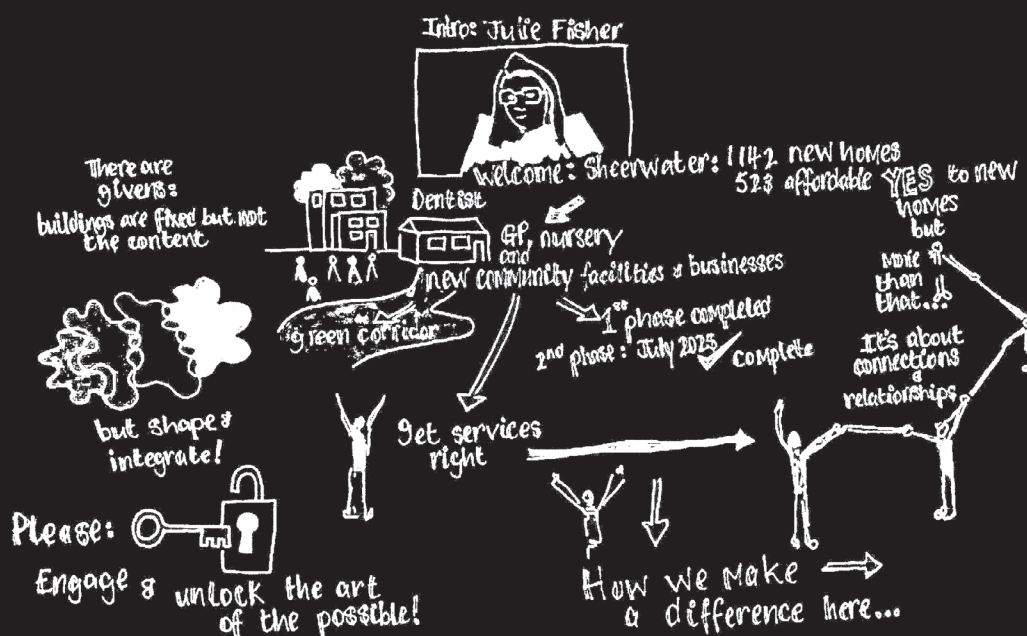 Intro: Julie Fisher
Welcome: Sheerwater: 1142 new homes
523 affordable
YES to new
homes
but
more
than
that...!!
It's about
connections
&
relationships
There are
givens:
buildings are fixed but not
the content
Dentist
GP, nursery
and
new community facilities & businesses
green corridor
1st phase completed
2nd phase: July 2025
Complete
but shape &
integrate!
get services
right
Please:
Engage & unlock the art
of the possible!
How we make
a difference here...